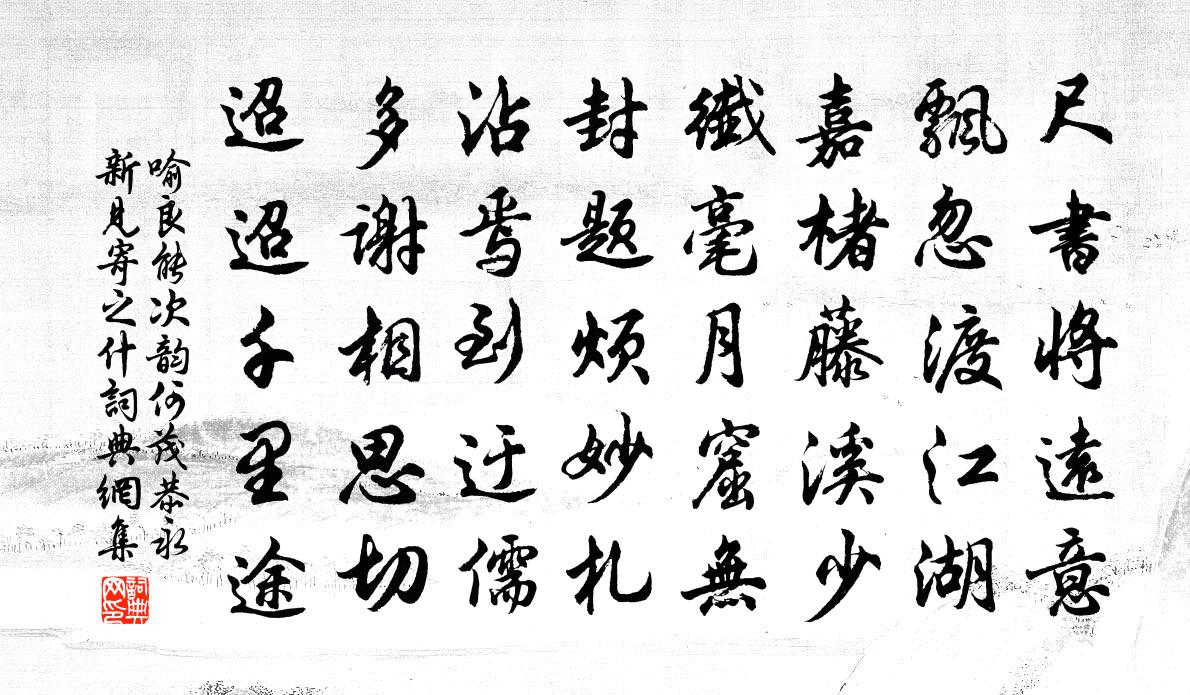 尺書將遠意
飄忽渡江湖
嘉楮藤溪少
纖毫月窟無
封題煩妙札
沾焉到迂儒
多謝相思切
迢迢千里途
喻良能次韵何茂恭永
新見寄之什詞典網集
詞典网印